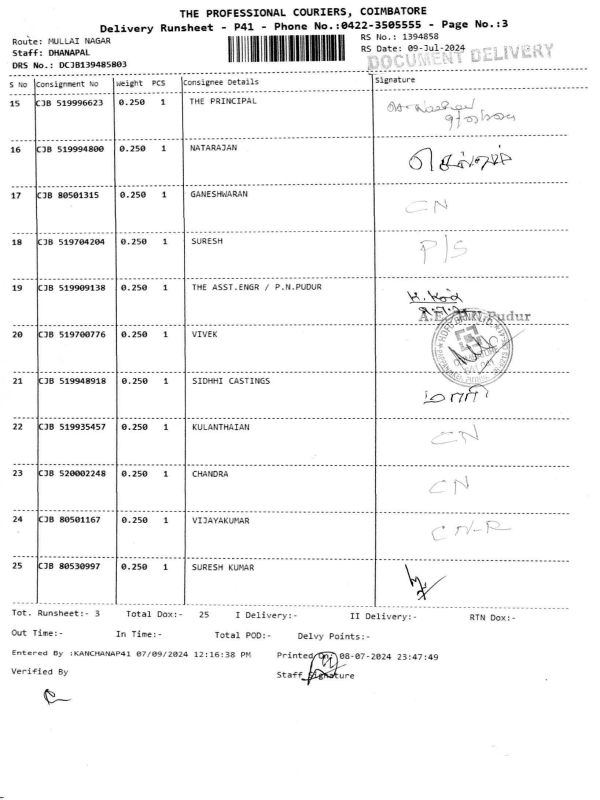 THE PROFESSIONAL COURIERS, COIMBATORE
Delivery Runsheet - P41 - Phone No.:0422-3505555 - Page No.:3
Route: MULLAI NAGAR
RS No.: 1394858
Staff: DHANAPAL
RS Date: 09-Jul-2024
DRS No.: DCJB139485803
DOCUMENT DELIVERY
S No Consignment No Weight PCS Consignee Details Signature
15 CJB 519996623 0.250 1 THE PRINCIPAL
16 CJB 519994800 0.250 1 NATARAJAN
17 CJB 80501315 0.250 1 GANESHWARAN CN
18 CJB 519704204 0.250 1 SURESH P/S
19 CJB 519909138 0.250 1 THE ASST.ENGR / P.N.PUDUR
20 CJB 519700776 0.250 1 VIVEK
21 CJB 519948918 0.250 1 SIDHHI CASTINGS
22 CJB 519935457 0.250 1 KULANTHAIAN CN
23 CJB 520002248 0.250 1 CHANDRA CN
24 CJB 80501167 0.250 1 VIJAYAKUMAR CN-R
25 CJB 80530997 0.250 1 SURESH KUMAR
Tot. Runsheet:- 3 Total Dox:- 25 I Delivery:- II Delivery:- RTN Dox:-
Out Time:- In Time:- Total POD:- Delvy Points:-
Entered By :KANCHANAP41 07/09/2024 12:16:38 PM Printed On: 08-07-2024 23:47:49
Verified By Staff Signature